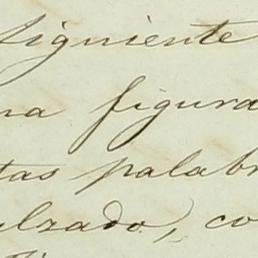 siguiente
na figura
tas palabr
lzado, co